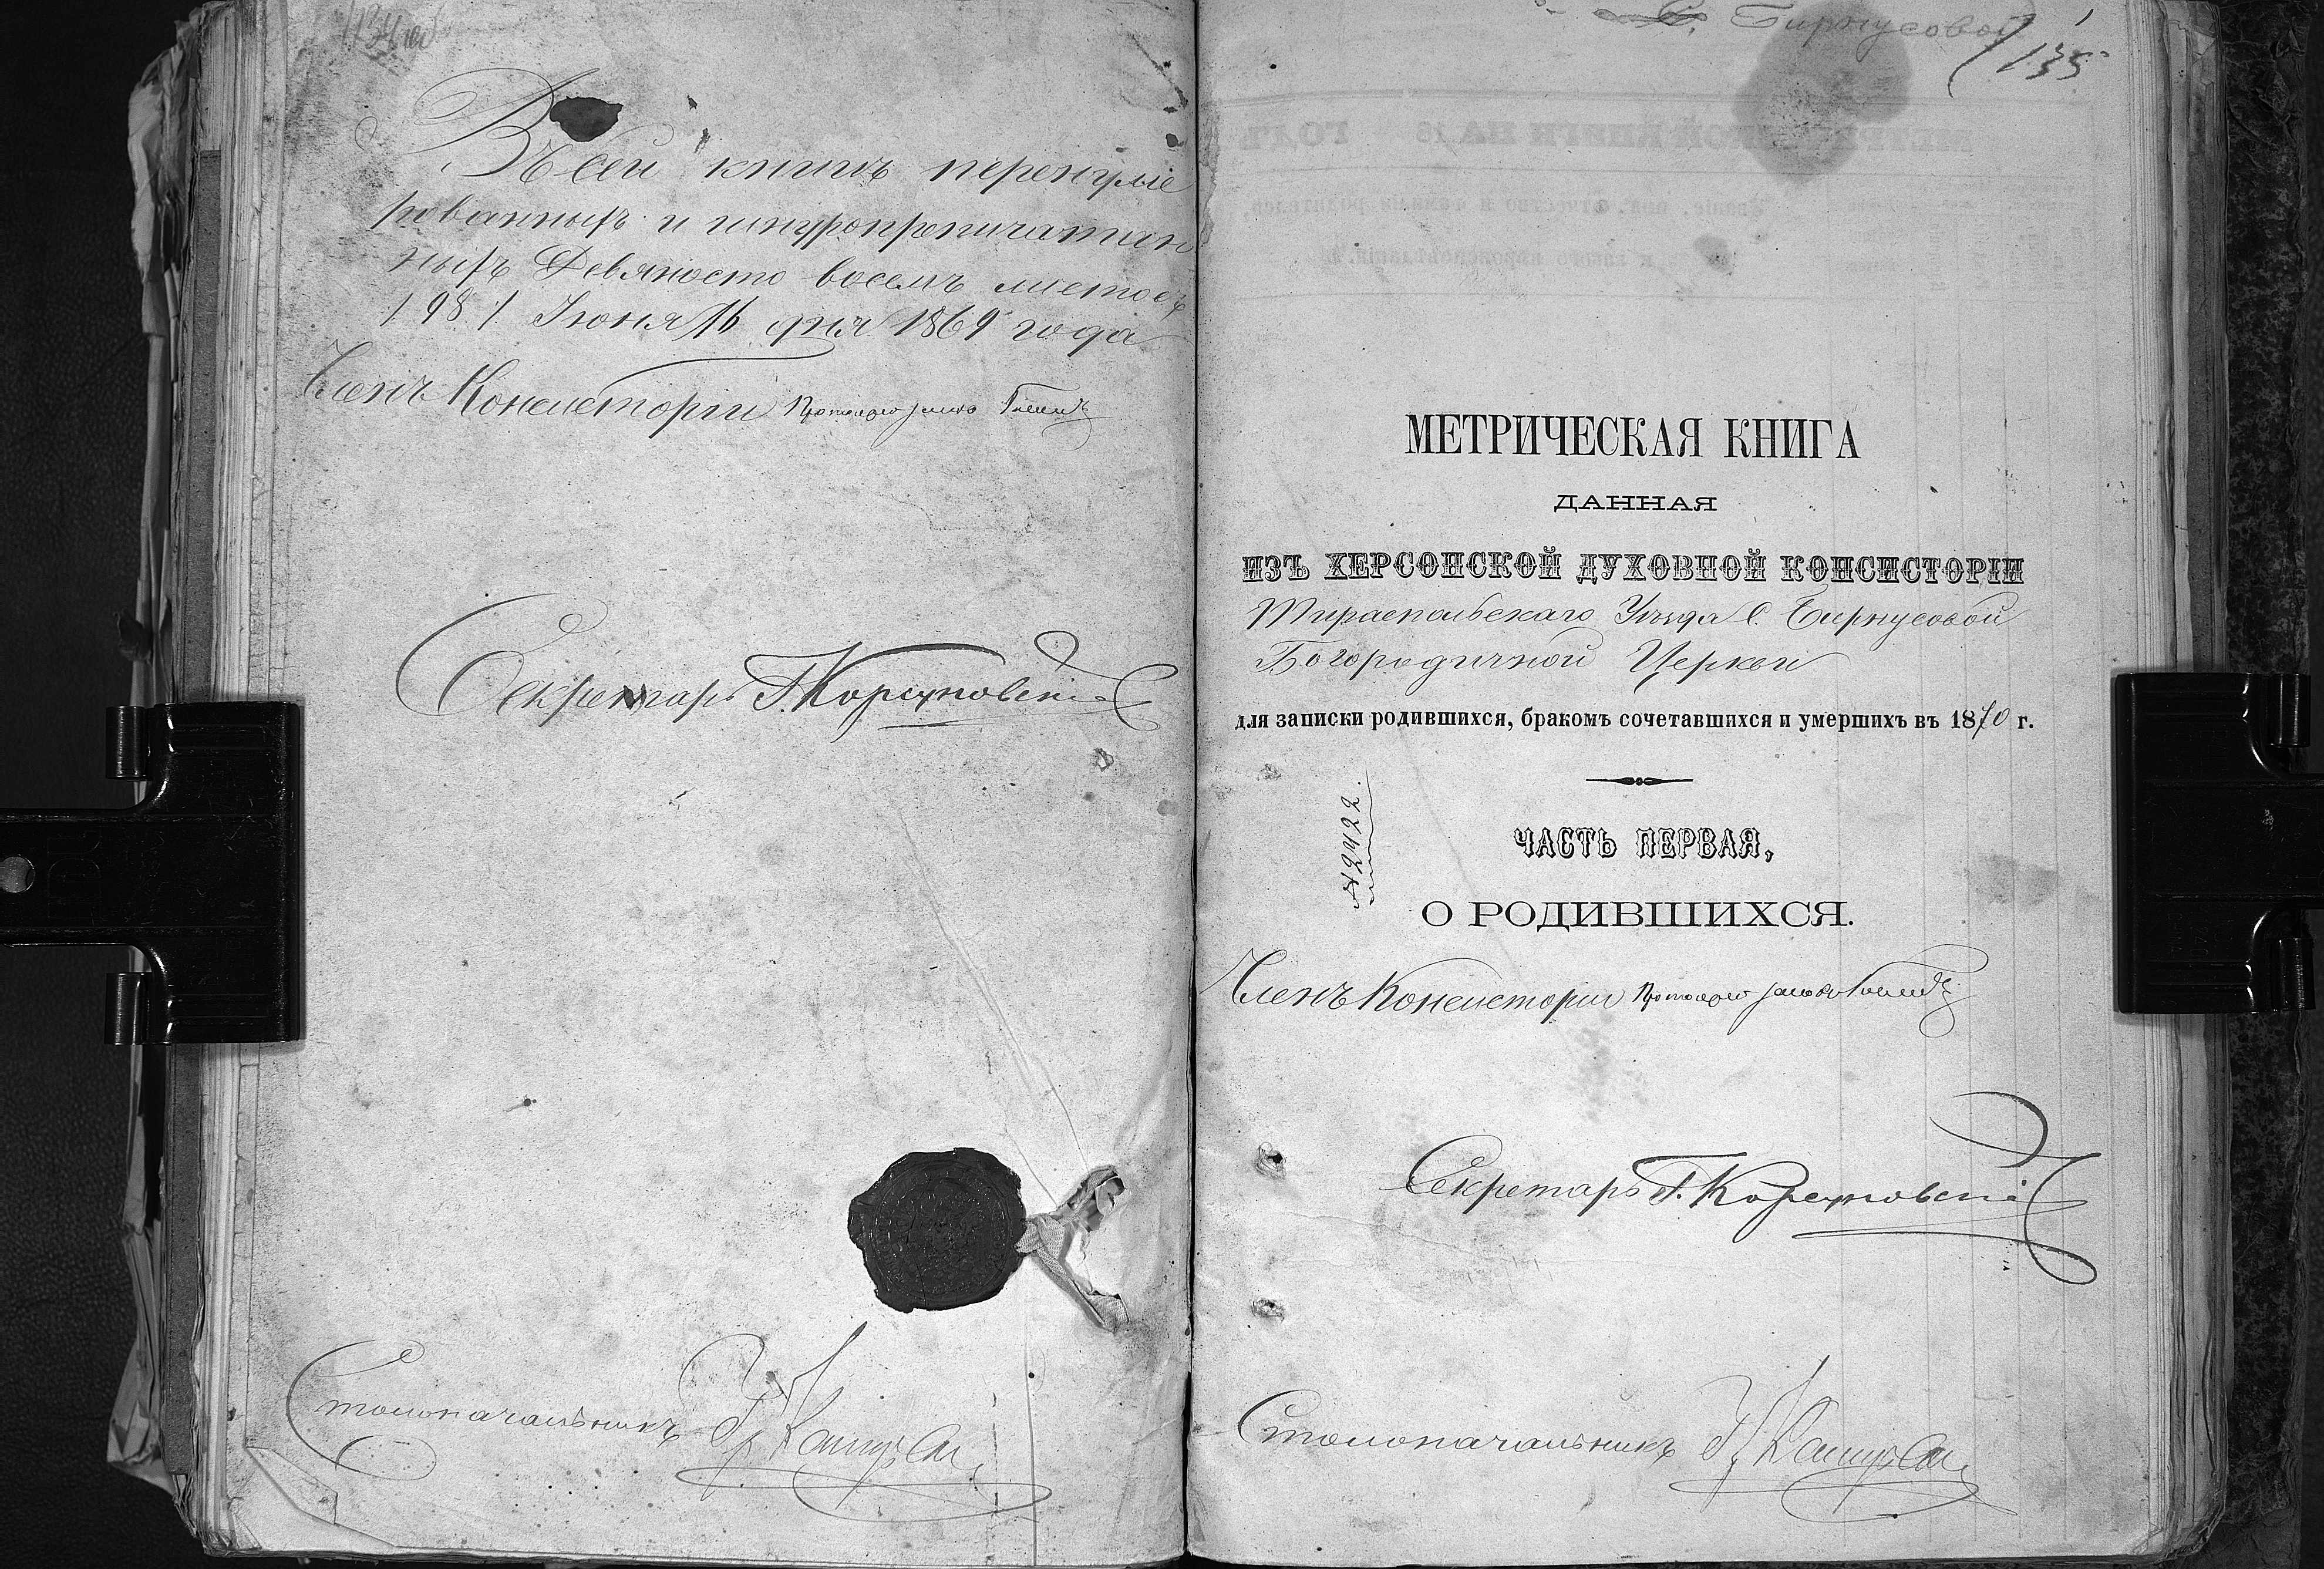 134 об
Въ сей книгѣ перенуме
рованныхъ и шнуропрепечатан
ныхъ Девяносто восемь листовъ
/ 98 /. Іюня 16 дня 1869 года
Членъ Консисторіи Протоіерей
Секретарь Г. Корсуновскій
Столоначальникъ
С. Бирнусовой
135
МЕТРИЧЕСКАЯ КНИГА
ДАННАЯ
ИЗЪ ХЕРСОНСКОЙ ДУХОВНОЙ КОНСИСТОРІИ
Тираспольскаго Уѣзда С. Бирнусовой
Богородичной Церкви
для записки родившихся, бракомъ сочетавшихся и умершихъ въ 1870 г.
№ 2422.
ЧАСТЬ ПЕРВАЯ,
О РОДИВШИХСЯ.
Членъ Консисторіи Протоіерей
Секретарь Г. Корсуновскій
Столоначальникъ